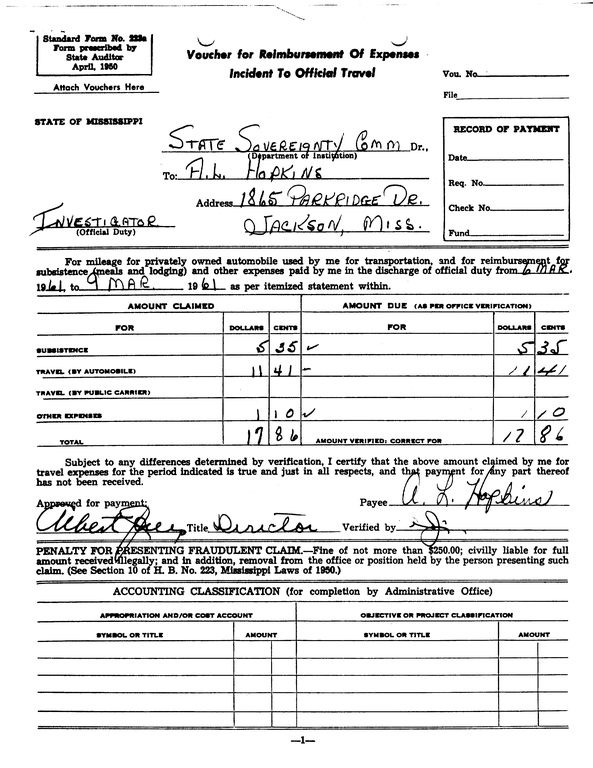 Standard Form No. 223a
Form prescribed by
State Auditor
April, 1950
Attach Vouchers Here
Voucher for Reimbursement Of Expenses
Incident To Official Travel
Vou. No.
File
STATE OF MISSISSIPPI
STATE SOVEREIGNTY COMM Dr.,
(Department of Institution)
To: A.L. HOPKINS
Address 1865 PARKRIDGE DR.
JACKSON, MISS.
INVESTIGATOR
(Official Duty)
RECORD OF PAYMENT
Date
Req. No.
Check No.
Fund
For mileage for privately owned automobile used by me for transportation, and for reimbursement for
subsistence (meals and lodging) and other expenses paid by me in the discharge of official duty from 6 MAR.
1961, to 9 MAR. 1961 as per itemized statement within.
AMOUNT CLAIMED AMOUNT DUE (AS PER OFFICE VERIFICATION)
FOR DOLLARS CENTS FOR DOLLARS CENTS
SUBSISTENCE 5 35 ✓ 5 35
TRAVEL (BY AUTOMOBILE) 11 41 – 11 41
TRAVEL (BY PUBLIC CARRIER)
OTHER EXPENSES 1 10 ✓ 1 10
TOTAL 17 86 AMOUNT VERIFIED; CORRECT FOR 17 86
Subject to any differences determined by verification, I certify that the above amount claimed by me for
travel expenses for the period indicated is true and just in all respects, and that payment for any part thereof
has not been received.
Approved for payment: Payee A. L. Hopkins
Albert Title Director Verified by
PENALTY FOR PRESENTING FRAUDULENT CLAIM.—Fine of not more than $250.00; civilly liable for full
amount received illegally; and in addition, removal from the office or position held by the person presenting such
claim. (See Section 10 of H. B. No. 223, Mississippi Laws of 1950.)
ACCOUNTING CLASSIFICATION (for completion by Administrative Office)
APPROPRIATION AND/OR COST ACCOUNT OBJECTIVE OR PROJECT CLASSIFICATION
SYMBOL OR TITLE AMOUNT SYMBOL OR TITLE AMOUNT
—1—